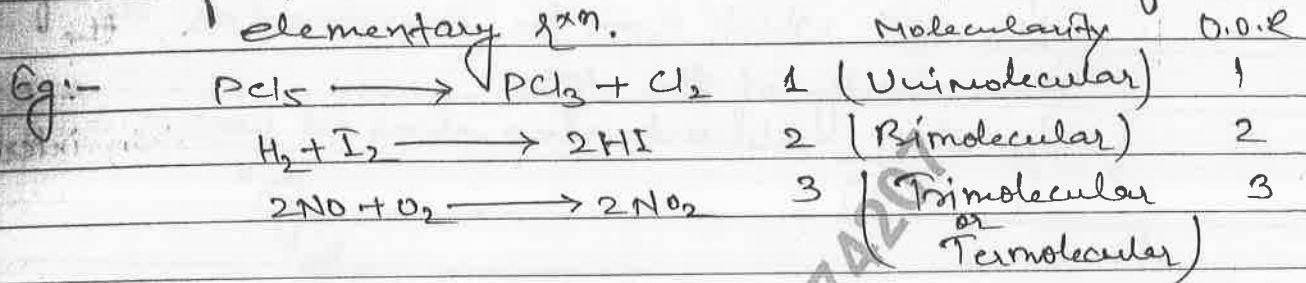 elementary rxn. Molecularity O.O.R
Eg:- PCl5 ⟶ PCl3 + Cl2 1 (Unimolecular) 1
H2 + I2 ⟶ 2HI 2 (Bimolecular) 2
2NO + O2 ⟶ 2NO2 3 (Trimolecular 3
or
Termolecular)